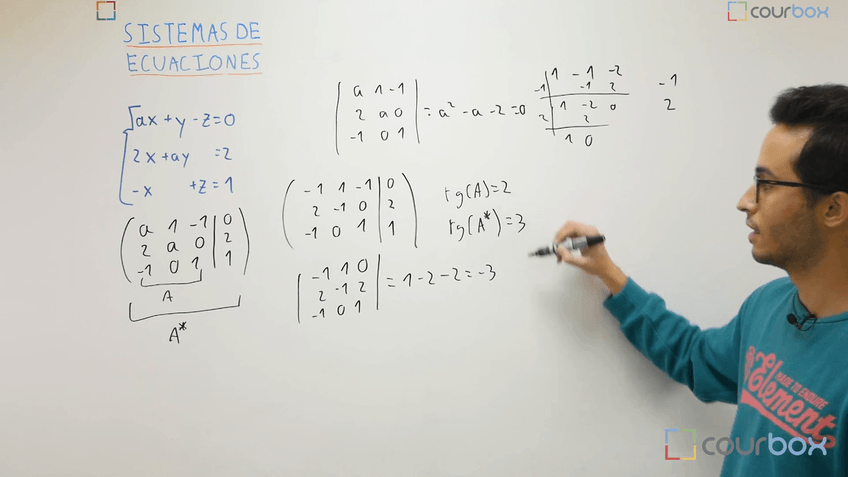 courbox
SISTEMAS DE
ECUACIONES
ax + y - z = 0
2x + ay = 2
-x + z = 1
a 1 -1 | 0
2 a 0 | 2
-1 0 1 | 1
A
A*
a 1 -1
2 a 0 = a² - a - 2 = 0
-1 0 1
1 -1 -2
-1 -1 2
1 -2 0
2 2
1 0
-1
2
-1 1 -1 | 0
2 -1 0 | 2
-1 0 1 | 1
rg(A) = 2
rg(A*) = 3
-1 1 0
2 -1 2 = 1 - 2 - 2 = -3
-1 0 1
MADE TO ENDURE
Element
courbox